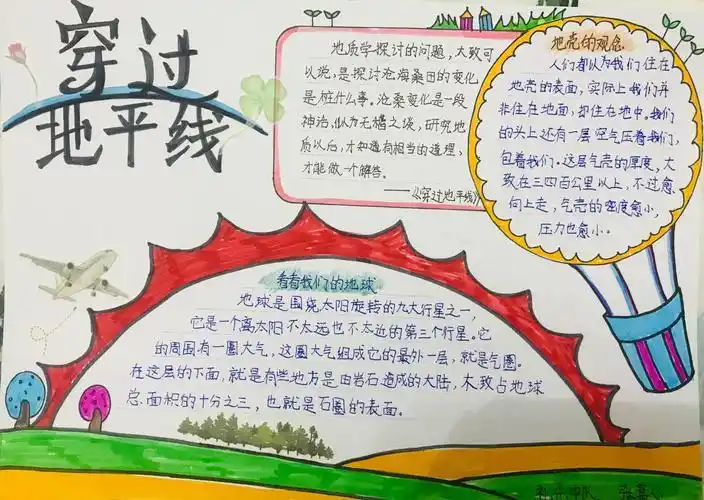 穿过
地平线
地质学探讨的问题，大致可
以说，是探讨沧海桑田的变化
是桩什么事。沧桑变化是一段
神话，似为无稽之谈，研究地
质以后，才知道有相当的道理，
才能做一个解答。
——《穿过地平线》
地壳的观念
人们都以为我们住在
地壳的表面，实际上我们并
非住在地面，却住在地中，我们
的头上还有一层空气压着我们，
包着我们。这层气壳的厚度，大
致在三四百公里以上，不过愈
向上走，气壳的密度愈小，
压力也愈小。
看看我们的地球
地球是围绕太阳旋转的九大行星之一，
它是一个离太阳不太远也不太近的第三个行星。它
的周围有一圈大气，这圈大气组成它的最外一层，就是气圈。
在这层的下面，就是有些地方是由岩石造成的大陆，大致占地球
总面积的十分之三，也就是石圈的表面。